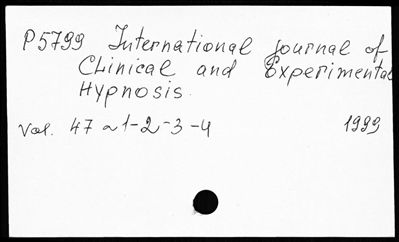 P5799 International journal of
Clinical and Experimental
Hypnosis.
Vol. 47 ~1-2-3-4 1999